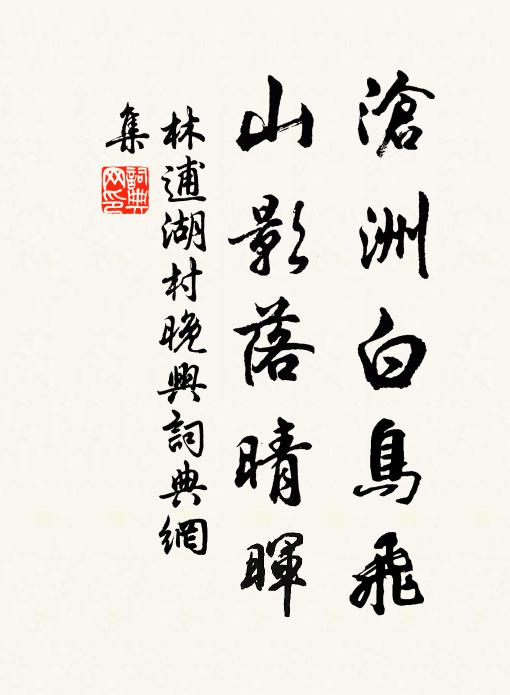 滄洲白鳥飛
山影落晴暉
林逋湖村晚興詞典網
集
詞典
网印